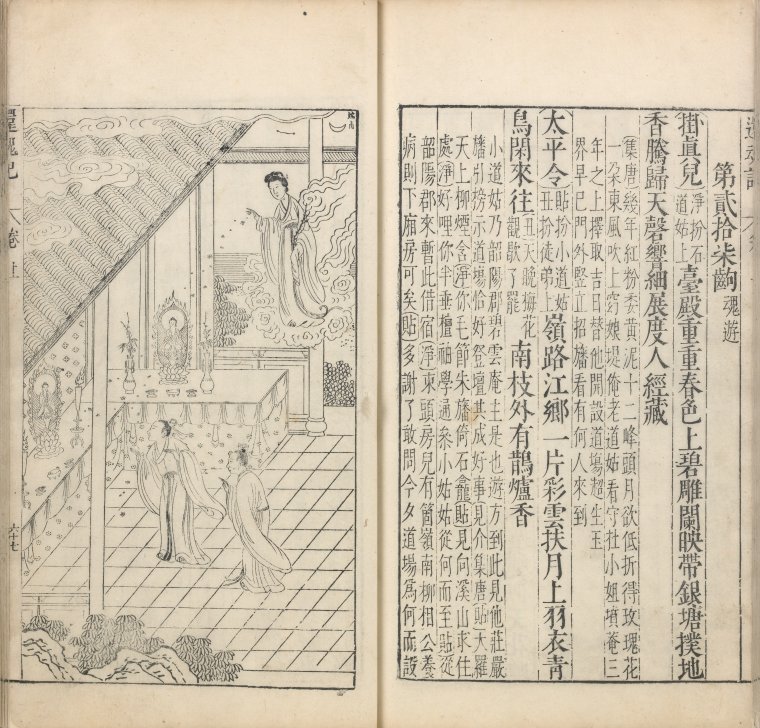 第貳拾柒齣 魂遊
掛眞兒 淨扮石道姑上 臺殿重重春色上碧雕闌映帶銀塘撲地
香騰歸天磬響細展度人經藏
集唐幾年紅粉委黄泥十二峰頭月欲低折得玫瑰花
一朶東風吹上窈娘堤俺老道姑看守杜小姐墳庵三
年之上擇取吉日替他開設道塲超生玉
界早已門外竪立招旛看有何人來到
太平令 貼扮小道姑丑扮徒弟上 嶺路江鄉一片彩雲扶月上羽衣青
鳥閑來往 丑天晚梅花觀歇了罷 南枝外有鵲爐香
小道姑乃韶陽郡碧雲庵主是也遊方到此見他莊嚴
旛引榜示道塲恰好登壇其成好事見介集唐貼大羅
天上柳煙含淨你毛節朱旛倚石龕貼見向溪山求住
處淨好哩你半垂檀袖學通參小姑姑從何而至貼從
韶陽郡來暫此借宿淨東頭房兒有箇嶺南柳相公養
病則下廂房可矣貼多謝了敢問今夕道塲爲何而設
還魂記 卷廿 六十七